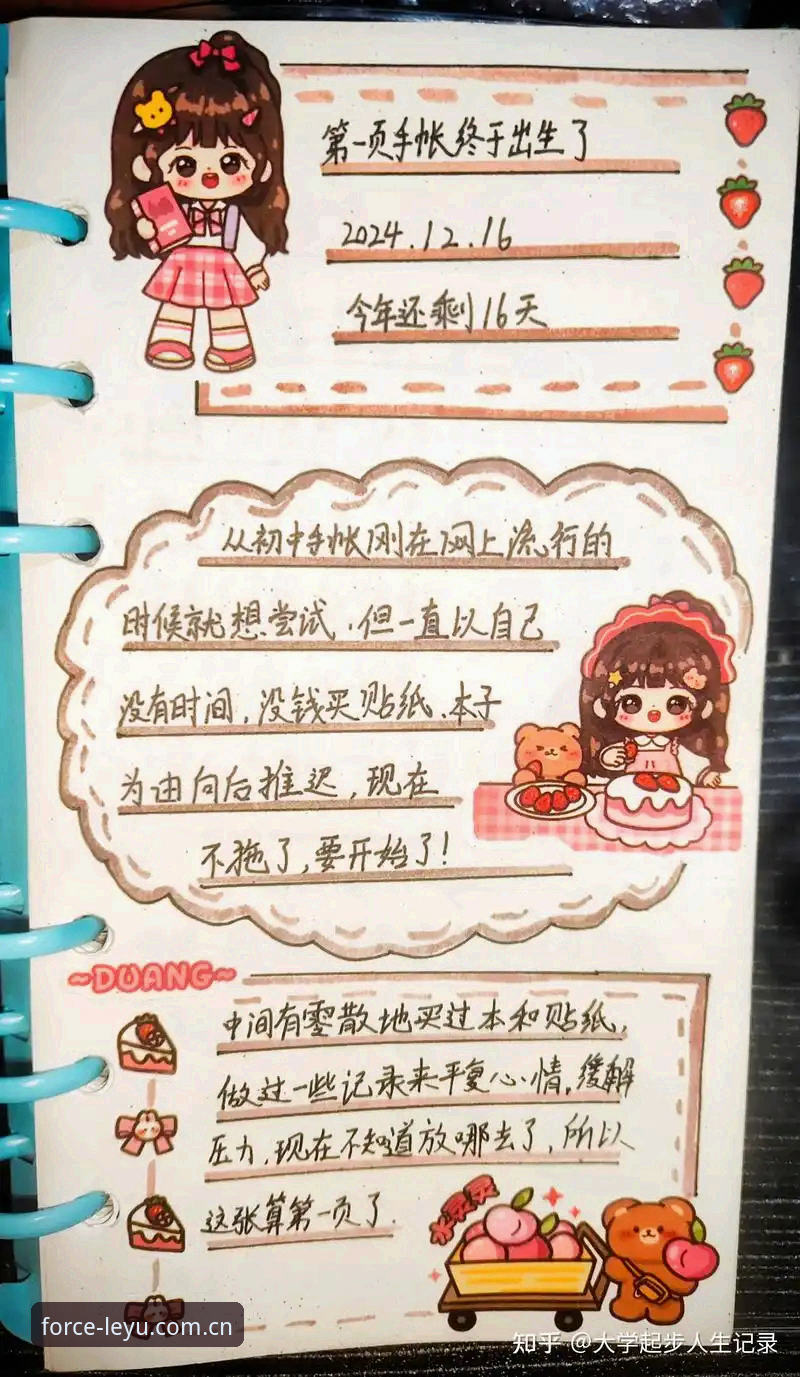 第一页手帐终于出生了
2024.12.16
今年还剩16天
从初中手帐刚在网上流行的
时候就想尝试,但一直以自己
没有时间,没钱买贴纸、本子
为由向后推迟,现在
不拖了,要开始了!
~DUANG~
中间有零散地买过本和贴纸,
做过一些记录来平复心情,缓解
压力,现在不知道放哪去了,所以
这张算第一页了.
水灵灵
force-leyu.com.cn
知乎 @大学起步人生记录